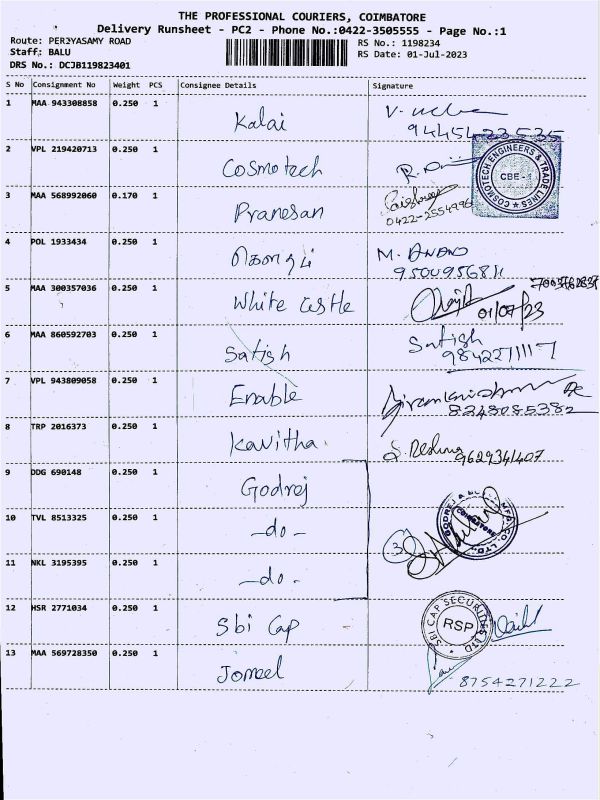 THE PROFESSIONAL COURIERS, COIMBATORE
Delivery Runsheet - PC2 - Phone No.:0422-3505555 - Page No.:1
Route: PERIYASAMY ROAD
Staff: BALU
DRS No.: DCJB119823401
RS No.: 1198234
RS Date: 01-Jul-2023
S No Consignment No Weight PCS Consignee Details Signature
1 MAA 943308858 0.250 1 Kalai
2 VPL 219420713 0.250 1 Cosmotech
COSMOTECH ENGINEERS & TRADE LINES
CBE -
3 MAA 568992060 0.170 1 Pranesan
0422-2554996
4 POL 1933434 0.250 1 M. ANAND
9500956811
5 MAA 300357036 0.250 1 White castle
01/07/23
6 MAA 860592703 0.250 1 Satish Satish
9842271117
7 VPL 943809058 0.250 1 Enable
8248085382
8 TRP 2016373 0.250 1 Kavitha. S. Reshma
9629341407
9 DDG 690148 0.250 1 Godrej
10 TVL 8513325 0.250 1 -do-
11 NKL 3195395 0.250 1 -do-
3
12 HSR 2771034 0.250 1 Sbi Cap
SBI CAP SECURITIES LTD
RSP
13 MAA 569728350 0.250 1 Jomeel
8754271222